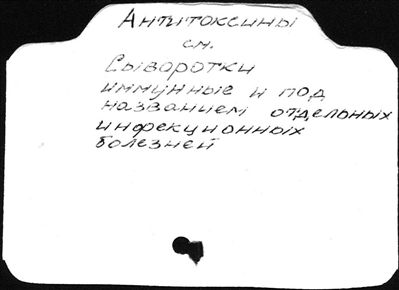 Антитоксины
см.
Сыворотки
иммунные и под
названием отдельных
инфекционных
болезней